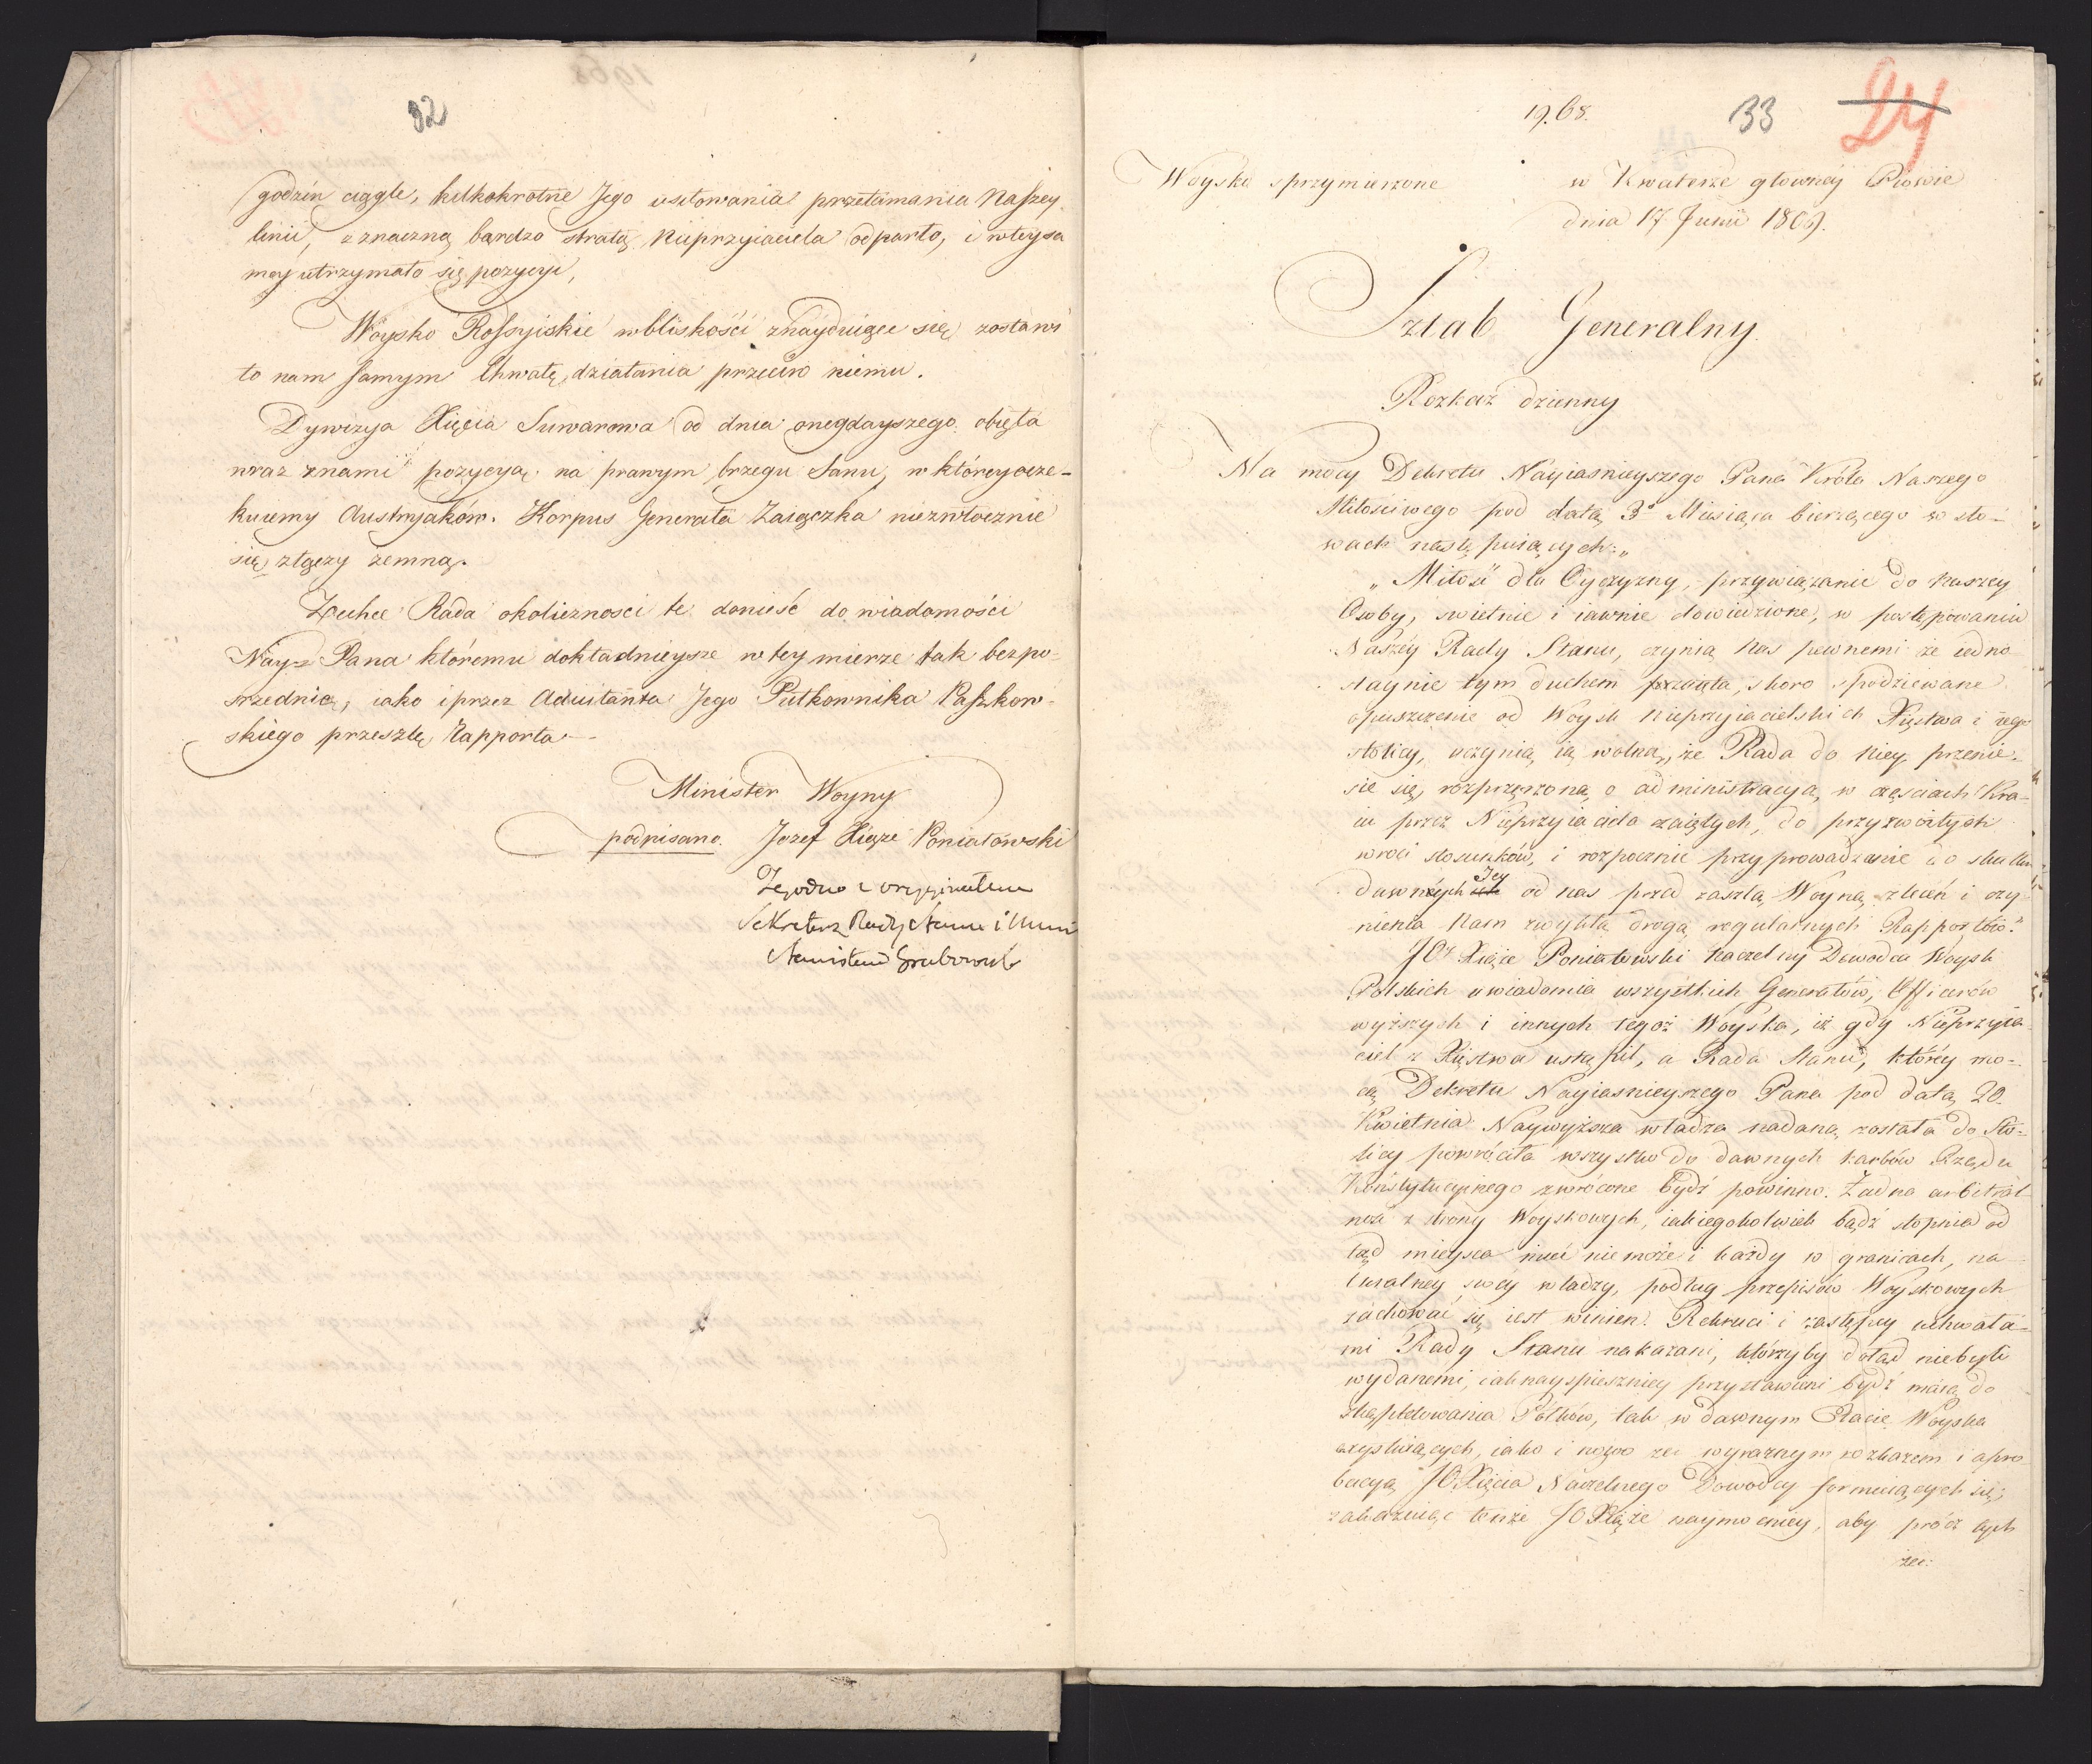 32
godzin ciągle, kilkokrotne Jego usiłowania przełamania Naszey
linii, z znaczną bardzo stratą Nieprzyiaciela odparto, i wteysa
mey utrzymało się pozycyi,
Woysko Rossyiskie wbliskości znayduiące się zostawi
to nam samym Chwałę działania przeciw niemu.
Dywizya Xięcia Suwarowa od dnia onegdayszego obięła
wraz znami pozycyą na prawym brzegu Sanu, w którey ocze-
kuiemy Austryaków. Korpus Generała Zaiączka niezwłocznie
się złączy zemną.
Zechce Rada okoliczności te donieść do wiadomości
Nayż Pana któremu dokładnieysze wtey mierze tak bezpo-
srzednio, iako i przez Adiutanta Jego Pułkownika Paszkow-
skiego przeszlę Rapporta—
Minister Woyny
podpisano. Jozef Xiąże Poniatowski
Zgodno z oryginałem
Sekretarz Rady Stanu i Mini
Stanisław Grabowski
19.68.
33
24
Woyska sprzymierzone
w Kwaterze głowney Piowie
dnia 17 Junii 1809.
Sztab Generalny.
Rozkaz dzienny
Na mocy Dekretu Nayiasnieyszego Pana Króla Naszego
Miłościwego pod datą 3º Miesiąca bieżącego w sło-
wach następuiących: „
„ Miłość dla Oyczyzny, przywiązanie do Naszey
Osoby, swietnie i iawnie dowiedzione, w postępowaniu
Naszéy Rady Stanu, czynią Nas pewnemi że iedno
staynie tym duchem przeięta, skoro spodziewane
opuszczenie od Woysk Nieprzyiacielskich Xięstwa i iego
stolicy, uczynią ią wolną, że Rada do Niey przenie-
sie się, rozprzężoną administracyą, w częsciach Kra-
iu przez Nieprzyiaciela zaiętych, do przyzwoitych
wróci stosunków, i rozpocznie przyprowadzenie do skutku
dawnych Jey od nas przed zaszłą Woyną zleceń i czy-
nienia Nam zwykłą drogą regularnych Rapportów."
JOº Xiąże Poniatowski Naczelny Dowodca Woysk
Polskich uwiadomia wszystkich Generałów, Officerów
wyższych i innych tegoż Woyska, iż gdy Nieprzyia-
ciel z Xięstwa ustąpił, a Rada Stanu, którey mo-
cą Dekretu Nayiasnieyszego Pana pod datą 20.
Kwietnia Naywyższa władza nadaną została do Sto-
licy powróciła wszystko do dawnych karbów Rządu
Konstytucyinego zwrócone bydź powinno. Żadna arbitral-
ność z strony Woyskowych, iakiegokolwiek bądź stopnia od
tąd mieysca mieć nie może i każdy w granicach, na
turalney swey władzy, podług przepisów Woyskowych
zachować się iest winien. Rekruci i zastępcy uchwała-
mi Rady Stanu nakazani, którzyby dotąd niebyli
wydanemi, iaknayspieszniey przystawieni bydź maią do
skompletowania Półków, tak w dawnym Etacie Woyska
exystuiących, iako i nowo za wyraznym rozkazem i apro
bacyą JO. Xięcia Naczelnego Dowodcy formuiących się;
zakazuiąc tenże JO Xiąże naymocniey, aby prócz tych
że: